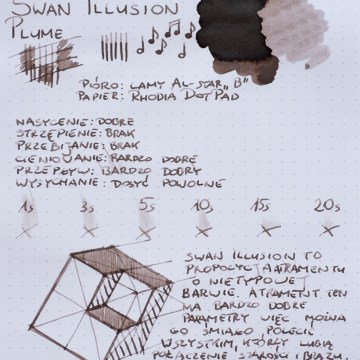 SWAN ILLUSION
PLUME
PIÓRO: LAMY AL-STAR „B"
PAPIER: RHODIA DOTPAD
NASYCENIE: DOBRE
STRZĘPIENIE: BRAK
PRZEBIJANIE: BRAK
CIENIOWANIE: BARDZO DOBRE
PRZEPŁYW: BARDZO DOBRY
WYSYCHANIE: DOSYĆ POWOLNE
1s 3s 5s 10s 15s 20s
SWAN ILLUSION TO
PROPOZYCJA ATRAMENTU
O NIETYPOWEJ
BARWIE. ATRAMENT TEN
MA BARDZO DOBRE
PARAMETRY WIĘC MOŻNA
GO ŚMIAŁO POLECIĆ
WSZYSTKIM, KTÓRZY LUBIĄ
POŁĄCZENIE SZAROŚCI I BRĄZU.